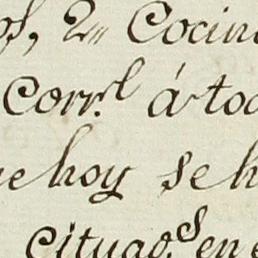 2ª Cocin
Corr.l á tod
e hoy se h
cituaos en e